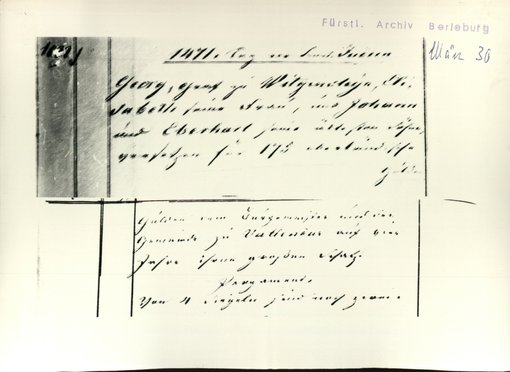 Fürstl. Archiv Berleburg
März 30
1471. Tag
Georg, Graf zu Witgenstein, Eli-
sabeth seine Frau, und Johann
und Eberhart seine ältesten Söhne,
versetzen für 175 oberländische
Gulde
Gulden dem Bürgermeister und der
Gemeinde zu Vallendar auf vier
Jahre ihren großen
Pergament.
Von 4 Siegeln sind noch zwei